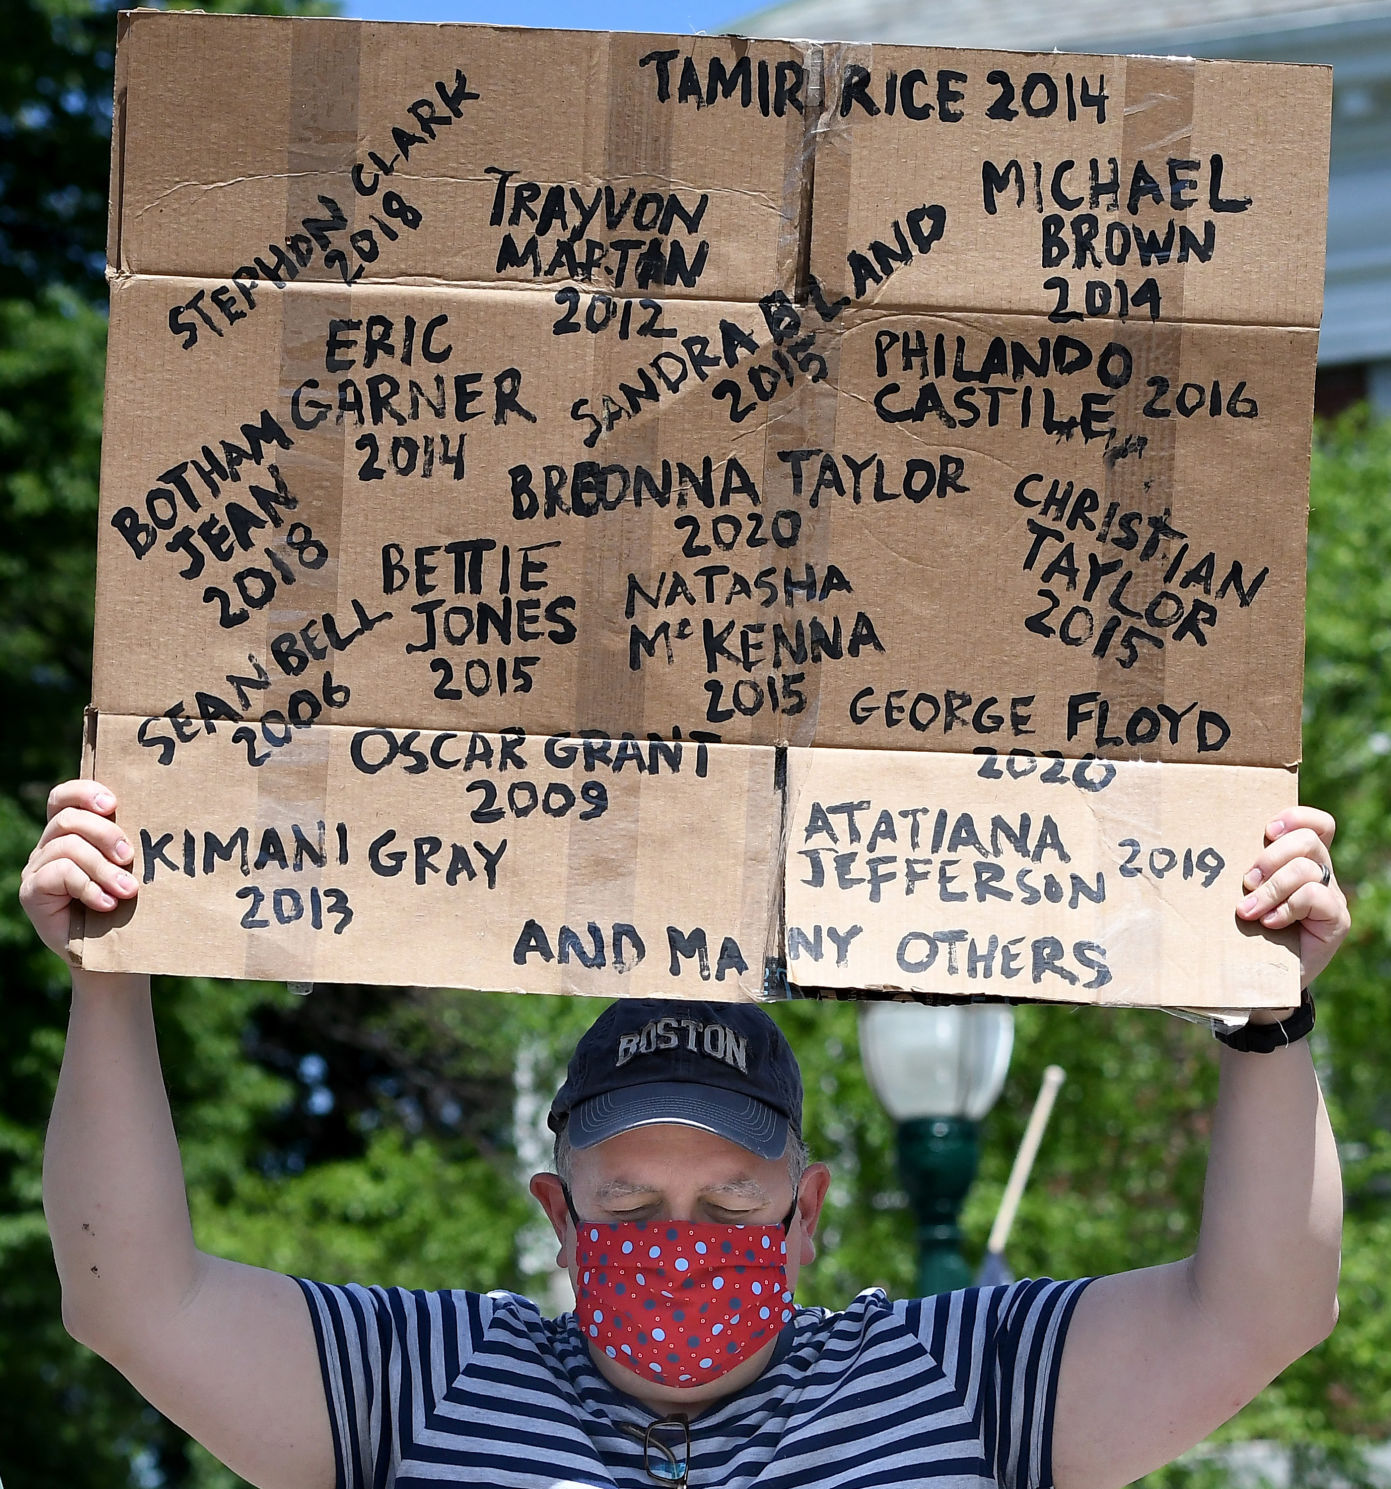 TAMIR RICE 2014
STEPHON CLARK
2018
TRAYVON
MARTIN
2012
MICHAEL
BROWN
2014
SANDRA BLAND
2015
ERIC
GARNER
2014
PHILANDO
CASTILE 2016
BOTHAM
JEAN
2018
BREONNA TAYLOR
2020
CHRISTIAN
TAYLOR
2015
BETTIE
JONES
2015
NATASHA
McKENNA
2015
SEAN BELL
2006
GEORGE FLOYD
2020
OSCAR GRANT
2009
KIMANI GRAY
2013
ATATIANA
JEFFERSON 2019
AND MANY OTHERS
BOSTON